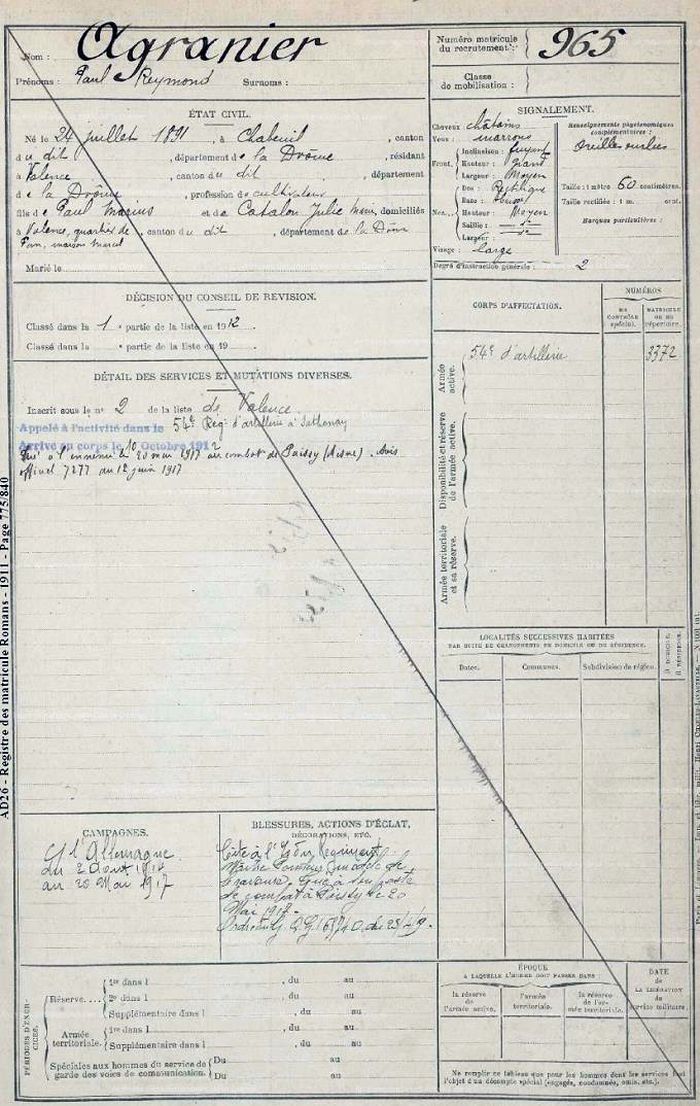 Nom : Agranier
Prénoms : Paul Reymond Surnoms :
Numéro matricule du recrutement : 965
Classe de mobilisation :
ÉTAT CIVIL.
Né le 24 juillet 1891, à Chabeuil, canton
du dit, département de la Drôme, résidant
à Valence, canton du dit, département
de la Drôme, profession de cultivateur
fils de Paul Marius et de Catalon Julie Marie, domiciliés
à Valence, quartier de
, maison Marcel, canton du dit, département de la Drôme
Marié le
SIGNALEMENT.
Cheveux châtains
Yeux : marrons
Front. Inclinaison : fuyant
Hauteur : grand
Largeur : Moyen
Nez. Dos : Rectiligne
Base :
Hauteur : Moyen
Saillie : d°
Largeur : d°
Visage : large
Renseignements physionomiques complémentaires :
Oreilles ourlées
Taille : 1 mètre 60 centimètres.
Taille rectifiée : 1 m. cent.
Marques particulières :
Degré d'instruction générale : 2
DÉCISION DU CONSEIL DE REVISION.
Classé dans la 1e partie de la liste en 1912
Classé dans la e partie de la liste en 19
DÉTAIL DES SERVICES ET MUTATIONS DIVERSES.
Inscrit sous le n° 2 de la liste de Valence
Appelé à l'activité dans le 54e Rég. d'artillerie à Sathonay
Arrivé au corps le 10 Octobre 1912
Tué à l'ennemi le 20 mai 1917 au combat de Paissy (Aisne). Avis
officiel 7277 du 12 juin 1917
CORPS D'AFFECTATION.
NUMÉROS
DU CONTRÔLE spécial.
MATRICULE OU DU répertoire.
Armée active.
54e d'artillerie 3372
Disponibilité et réserve de l'armée active.
Armée territoriale et sa réserve.
LOCALITÉS SUCCESSIVES HABITÉES
PAR SUITE DE CHANGEMENTS DE DOMICILE OU DE RÉSIDENCE.
Dates. Communes. Subdivision de région.
D. DOMICILE. R. RÉSIDENCE.
CAMPAGNES.
l'Allemagne
du 2 Août 1914
au 20 Mai 1917
BLESSURES, ACTIONS D'ÉCLAT,
DÉCORATIONS, ETC.
Cité à l'Ordre Régiment
modèle de
bravoure. Tué à son poste
de combat à Paissy le 20
Mai 1917.
PÉRIODES D'EXERCICES.
Réserve.... 1re dans l , du au
2e dans l , du au
Supplémentaire dans l , du au
Armée territoriale. 1re dans l , du au
Supplémentaire dans l , du au
Spéciales aux hommes du service de garde des voies de communication. Du au
Du au
ÉPOQUE
A LAQUELLE L'HOMME DOIT PASSER DANS
la réserve de l'armée active.
l'armée territoriale.
la réserve de l'armée territoriale.
DATE DE LA LIBÉRATION du service militaire.
Ne remplir ce tableau que pour les hommes dont les services font
l'objet d'un décompte spécial (engagés, condamnés, omis, etc.).
AD26 - Registre des matricule Romans - 1911 - Page 775/840